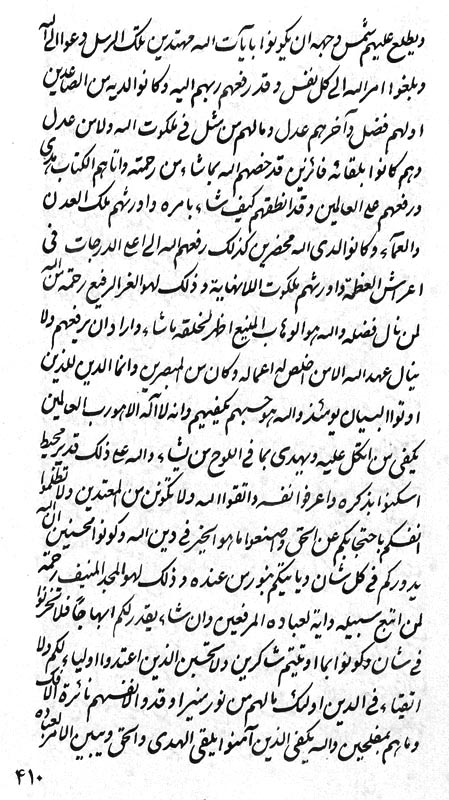 ویطلع علیهم شمس وجهه ان یکونوا بایات الله مهتدین تلک الرسل دعوا الی الله
وبلغوا امر الله الی کل نفس وقد رفعهم ربهم الیه وکانوا لدیه من الصاعدین
اولهم فضل وآخرهم عدل ومالهم من مثل فی ملکوت الله ولا من عدل
وهم کانوا بلقائه فائزین قد خصهم الله بما شاء من رحمته واتاهم الکتاب هدی
ورفعهم علی العالمین وقد انطقهم کیف شاء بامره واورثهم ملک العدن
والعماء وکانوا لدی الله محضرین کذلک رفعهم الله الی اعلی الدرجات فی
اعراش العظمة واورثهم ملکوت اللانهایة وذلک لهو العز الرفیع رحمة من الله
لمن نال فضله والله هو الوهاب المنیع اظهر لخلقه ما شاء واراد ان یرفعهم ولا
ینال عهد الله الا من اخلص له اعماله وکان من المبصرین وانما الدین للذین
اوتوا البیان یومئذ والله هو حسبهم یکفیهم وانه لا اله الا هو رب العالمین
یکفی من اتکل علیه ویهدی بما فی اللوح من یشاء والله علی ذلک قدیر محیط
اسکنوا بذکره واعرفوا نفسه واتقوا الله ولا تکونن من المعتدین ولا تظلموا
انفسکم باحتجابکم عن الحق واصنعوا ما هو الخیر فی دین الله وکونوا محسنین ان الله
یدورکم فی کل شان ویاتیکم بنور من عنده وذلک لهو المجد المنیف رحمة
لمن اتبع سبیله وایة لعباده المرفعین وان شاء یقدر لکم ابهاجا فلا تحزنوا
فی شان وکونوا بما اوتیتم شاکرین ولا تحسبن الذین اعتدوا اولیاء لکم ولا
اتقیاء فی الدین اولئک مالهم من نور منیر اوقدوا لانفسهم نائرة الافک
وما هم بمفلحین والله یکفی الذین آمنوا یلقی الهدی والحق ویبین الامر لعباده
۴۱۰